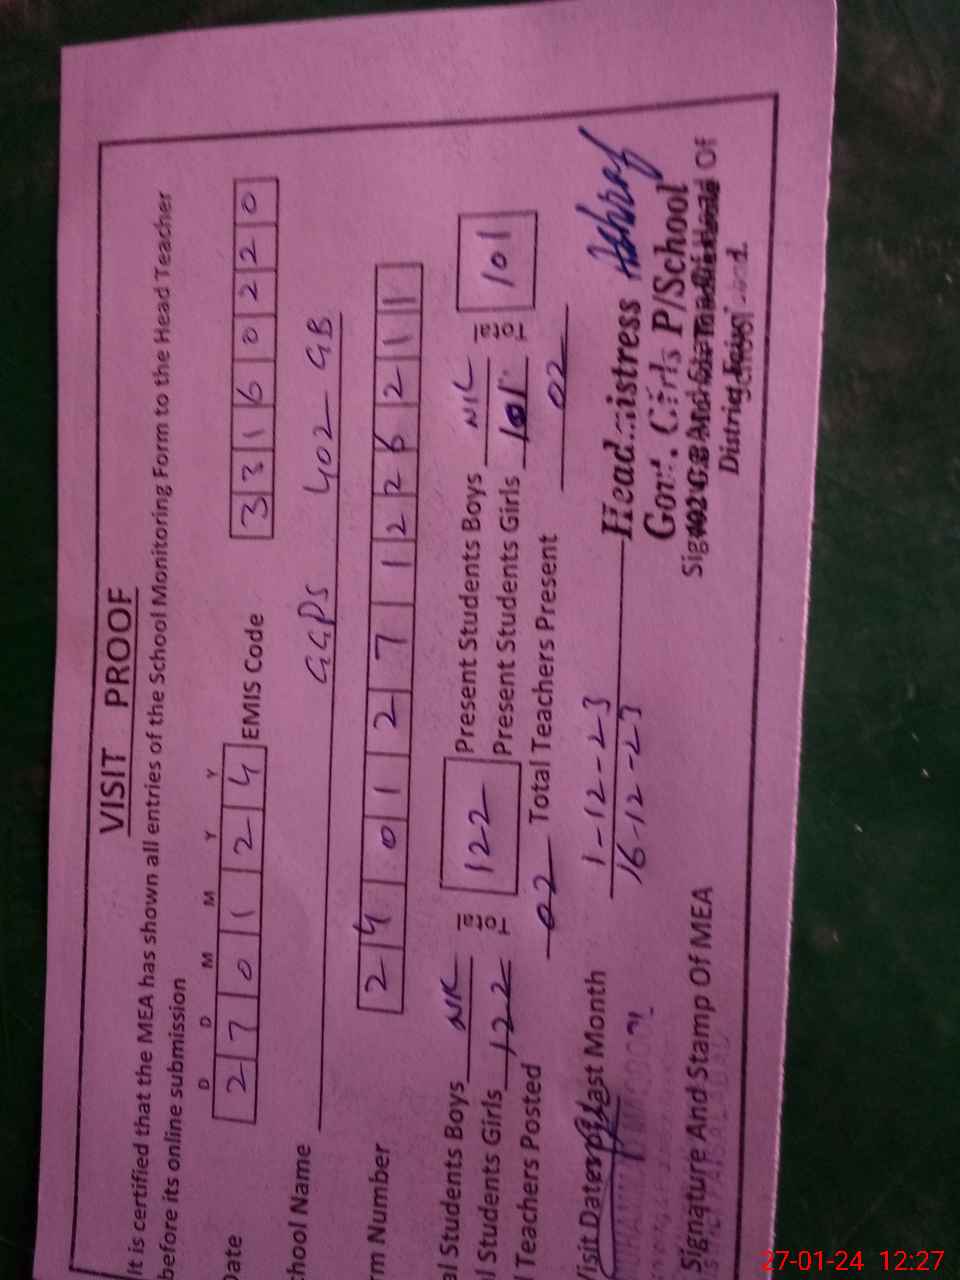 VISIT PROOF
It is certified that the MEA has shown all entries of the School Monitoring Form to the Head Teacher
before its online submission
D D M M Y Y
Date 2 7 0 1 2 4 EMIS Code 3 3 1 6 0 2 2 0
chool Name GGPS 402 GB
rm Number 2 4 0 1 2 7 1 2 2 6 2 1 1
al Students Boys Nil Total 122 Present Students Boys NIL Total 101
l Students Girls 122 Present Students Girls 101
l Teachers Posted 02 Total Teachers Present 02
Visit Date of last Month 1-12-23
16-12-23
Ashraf
Headmistress
Govt. Girls P/School
402 G.B
Signature And Stamp Of MEA
Of
School
District
27-01-24 12:27